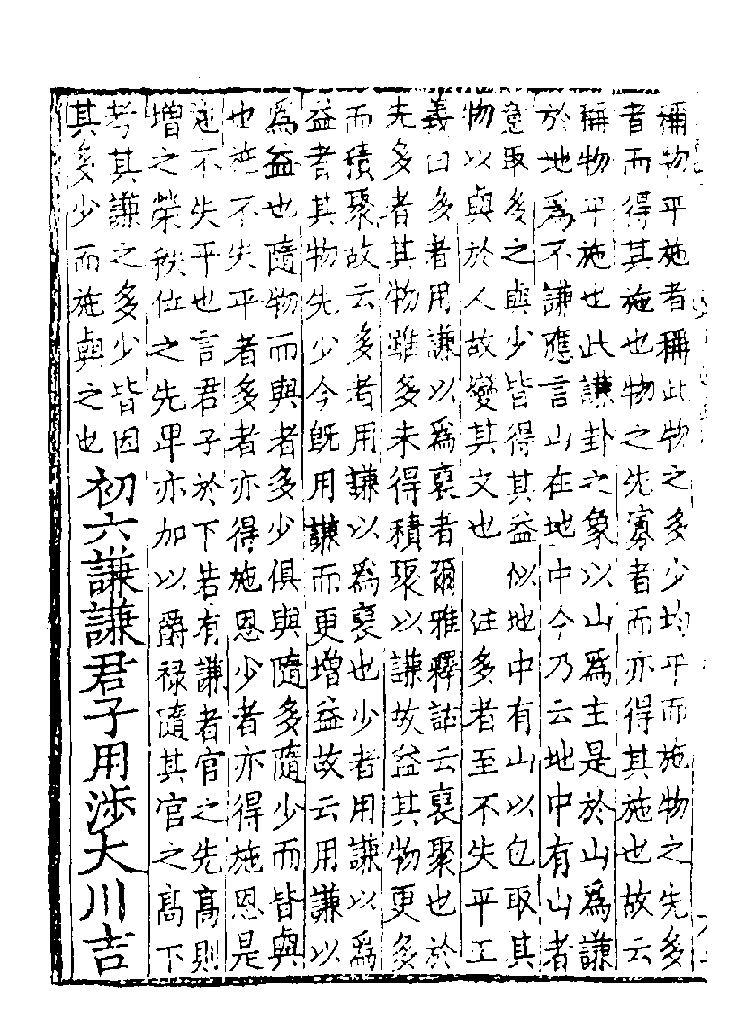 稱物平施者稱此物之多少均平而施物之先多
者而得其施也物之先寡者而亦得其施也故云
稱物平施也此謙卦之象以山爲主是於山爲謙
於地爲不謙應言山在地中今乃云地中有山者
意取多之與少皆得其益似地中有山以包取其
物以與於人故變其文也　注多者至不失平正
義曰多者用謙以爲裒者爾雅釋詁云裒聚也於
先多者其物雖多未得積聚以謙故益其物更多
而積聚故云多者用謙以爲裒也少者用謙以爲
益者其物先少今旣用謙而更增益故云用謙以
爲益也隨物而與者多少俱與隨多隨少而皆與
也施不失平者多者亦得施恩少者亦得施恩是
施不失平也言君子於下若有謙者官之先高則
增之榮秩位之先卑亦加以爵禄隨其官之高下
考其謙之多少皆因
其多少而施與之也
初六謙謙君子用涉大川吉